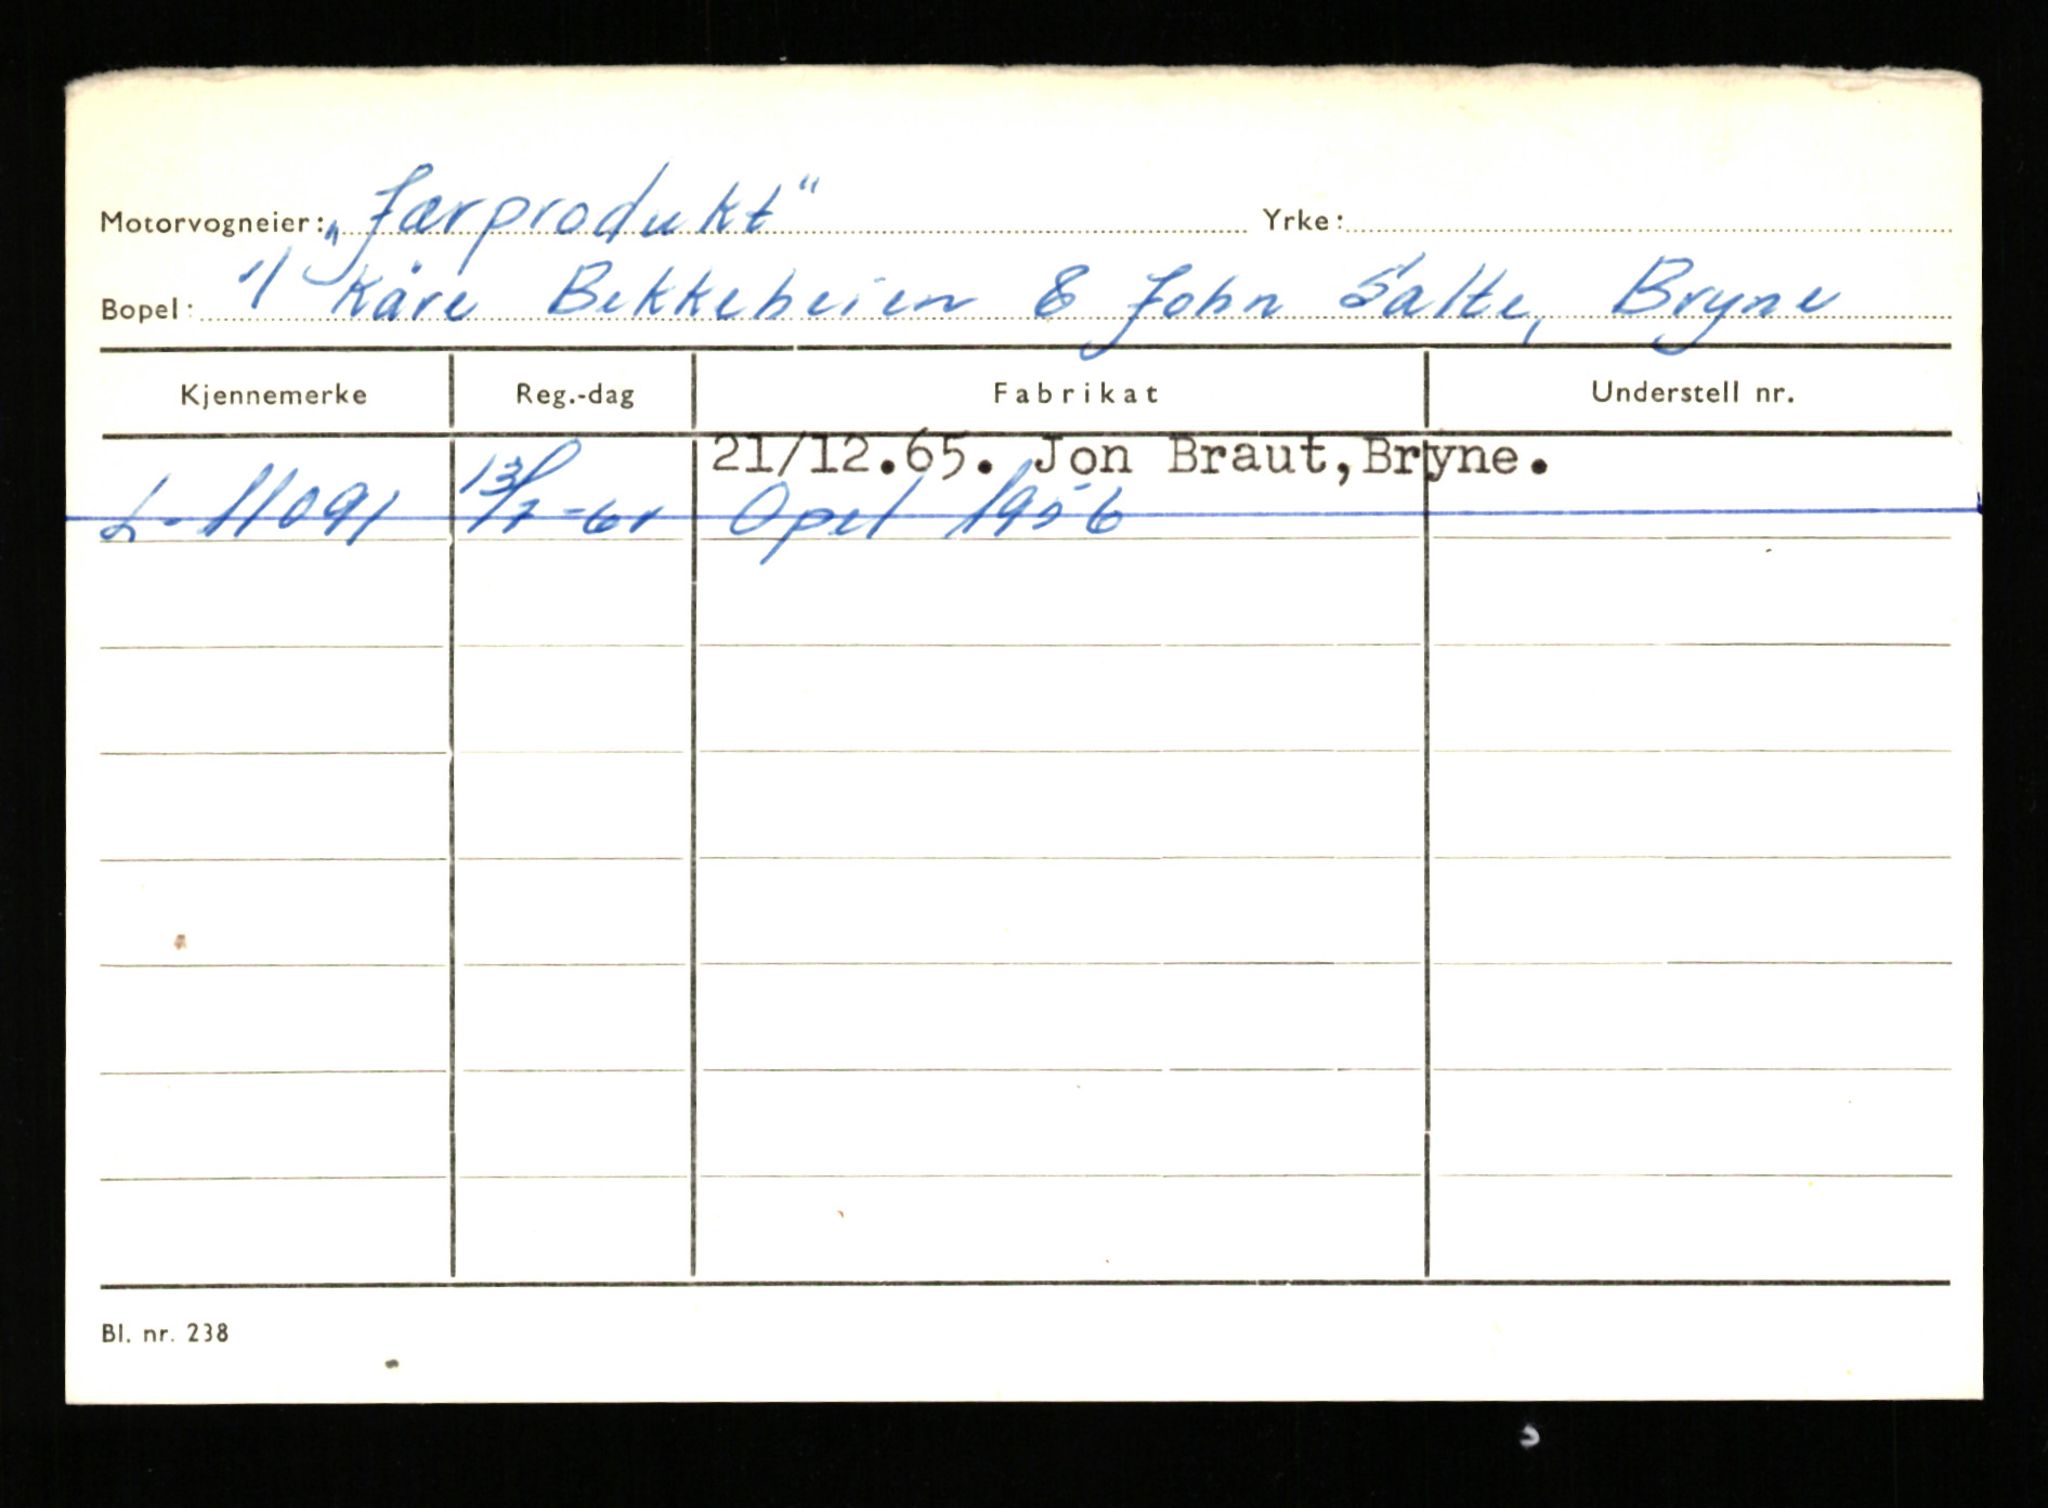 Motorvogneier: „Jærprodukt“ Yrke:
Bopel: v/ Kåre Bekkeheien & John Salte, Bryne
Kjennemerke Reg.-dag Fabrikat Understell nr.
21/12.65. Jon Braut, Bryne.
L-11091 13/7-61 Opel 1956
Bl. nr. 238